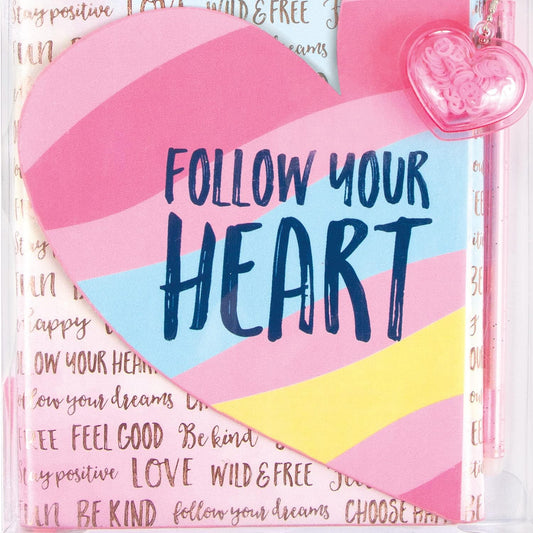 Stay positive LOVE WILD & FREE
follow your dreams
FOLLOW YOUR
HEART
happy
OW YOUR HEAR
ollow your dreams
FREE FEEL GOOD Be kind
Stay positive LOVE WILD & FREE
BE KIND follow your dreams CHOOSE HAP